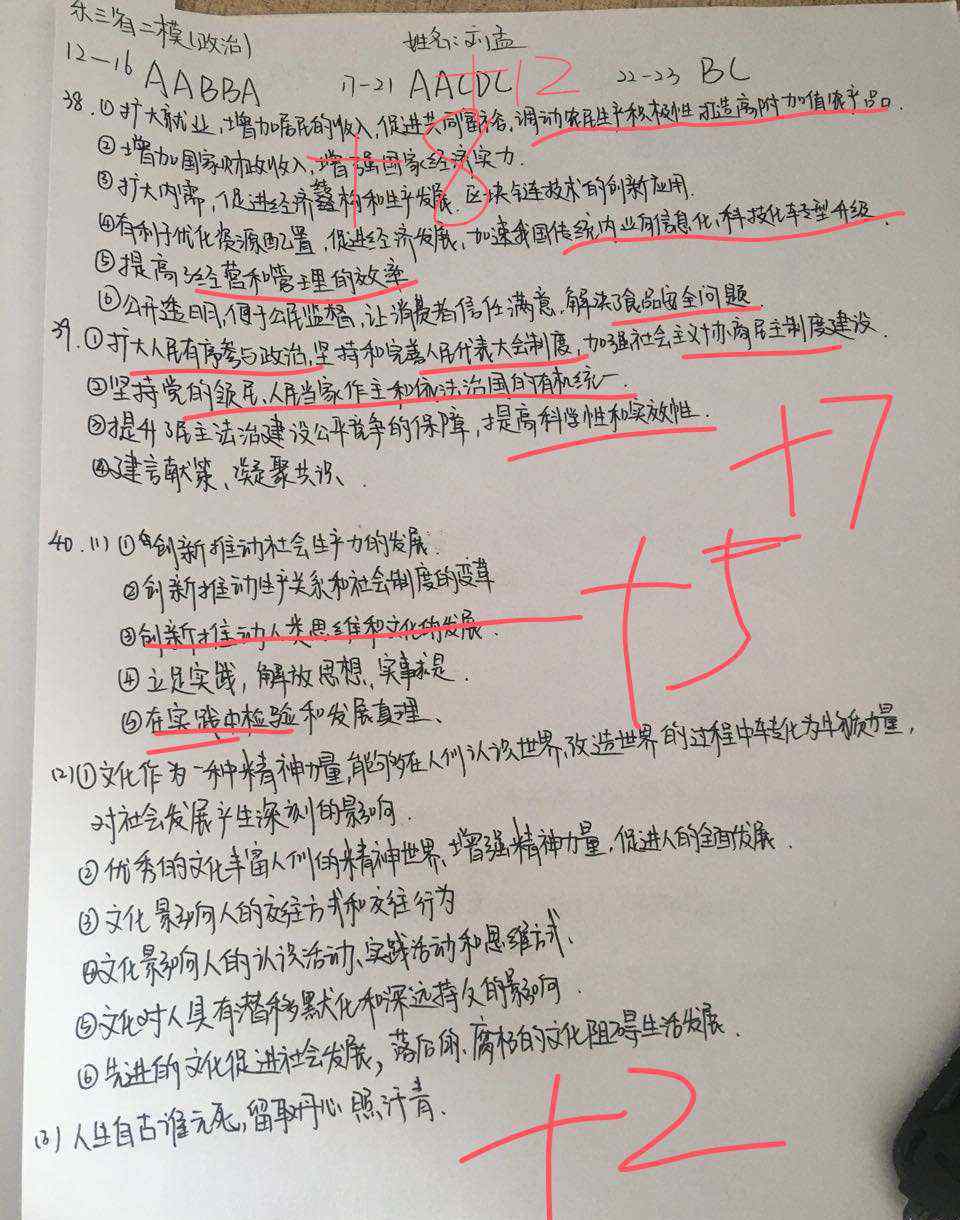 东三省二模(政治) 姓名:刘孟
12-16 AABBA 17-21 AACDC +12 22-23 BC
38.①扩大就业,增加居民的收入,促进共同富裕,调动农民生产积极性,打造高附加值农产品
②增加国家财政收入,增强国家经济实力.
+8
③扩大内需,促进经济结构和生产发展.区块链技术的创新应用.
④有利于优化资源配置,促进经济发展,加速我国传统产业向信息化、科技化转型升级
⑤提高了经营和管理的效率
⑥公开透明,便于公民监督,让消费者信任满意.解决了食品安全问题.
39.①扩大人民有序参与政治,坚持和完善人民代表大会制度,加强社会主义协商民主制度建设.
②坚持党的领导、人民当家作主和依法治国的有机统一.
③提升了民主法治建设公平竞争的保障,提高科学性和实效性.
④建言献策、凝聚共识、.
+7
40.(1)①创新推动社会生产力的发展.
②创新推动生产关系和社会制度的变革
③创新推动人类思维和文化的发展.
+5
④立足实践,解放思想、实事求是.
⑤在实践中检验和发展真理、
(2)①文化作为一种精神力量,能够在人们认识世界、改造世界的过程中转化为物质力量,
对社会发展产生深刻的影响.
②优秀的文化丰富人们的精神世界、增强精神力量,促进人的全面发展.
③文化影响人的交往方式和交往行为
④文化影响人的认识活动、实践活动和思维方式、
⑤文化对人具有潜移默化和深远持久的影响.
⑥先进的文化促进社会发展,落后的、腐朽的文化阻碍生活发展.
(3)人生自古谁无死,留取丹心照汗青.
+2